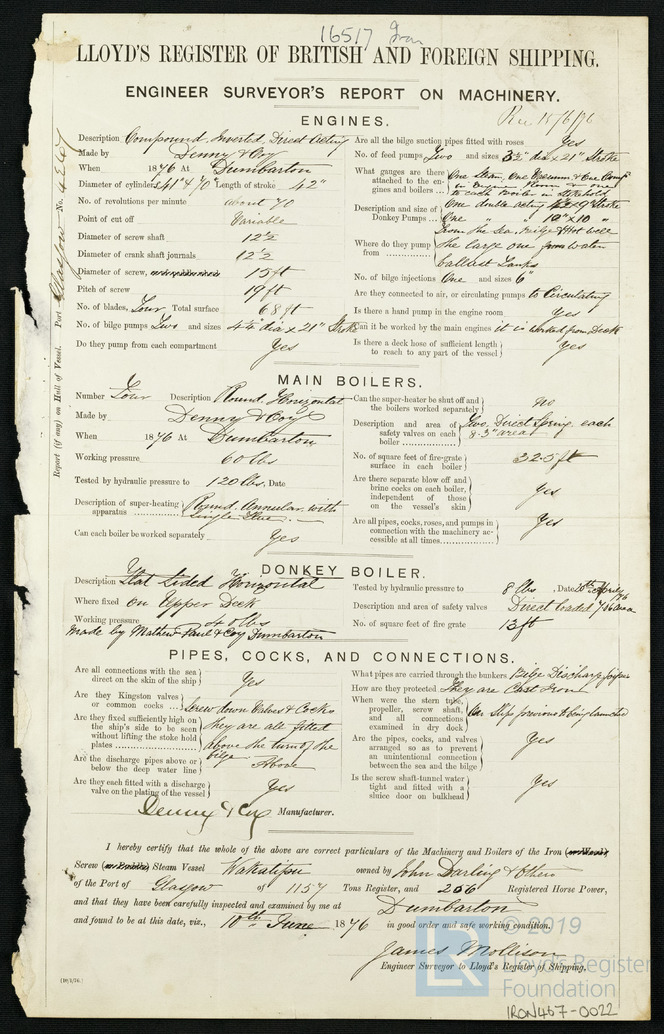 16517 Iron
LLOYD'S REGISTER OF BRITISH AND FOREIGN SHIPPING.
ENGINEER SURVEYOR'S REPORT ON MACHINERY.
Rec 15/6/76
Report (if any) on Hull of Vessel. Port Glasgow No.
ENGINES.
Description Compound, Inverted, Direct Acting
Made by Denny & Coy
When 1876 At Dumbarton
Diameter of cylinders 41" & 70" Length of stroke 42"
No. of revolutions per minute about 70
Point of cut off Variable
Diameter of screw shaft 12½
Diameter of crank shaft journals 12½
Diameter of screw, 15 ft
Pitch of screw 19 ft
No. of blades, Four Total surface 68 ft
No. of bilge pumps Two and sizes 4½" dia x 21" Stroke
Do they pump from each compartment Yes
Are all the bilge suction pipes fitted with roses Yes
No. of feed pumps Two and sizes 3½" dia x 21" Stroke
What gauges are there attached to the engines and boilers One Steam, One Vacuum & One Comp in Engine Room & one to each boiler in Stokehold
Description and size of Donkey Pumps One double acting x 9" Stroke
One " " 10" x 10" "
Where do they pump from From the Sea, Bilge & Hot well
the large one from water
ballast Tanks
No. of bilge injections One and sizes 6"
Are they connected to air, or circulating pumps to Circulating
Is there a hand pump in the engine room Yes
Can it be worked by the main engines it is worked from Deck
Is there a deck hose of sufficient length to reach to any part of the vessel Yes
MAIN BOILERS.
Number Four Description Round Horizontal
Made by Denny & Coy
When 1876 At Dumbarton
Working pressure 60 lbs
Tested by hydraulic pressure to 120 lbs, Date
Description of super-heating apparatus Round Annular with
single flue
Can each boiler be worked separately Yes
Can the super-heater be shut off and the boilers worked separately no
Description and area of safety valves on each boiler Two, Direct Spring each
8.3" area
No. of square feet of fire-grate surface in each boiler 32.5 ft
Are there separate blow off and brine cocks on each boiler, independent of those on the vessel's skin Yes
Are all pipes, cocks, roses, and pumps in connection with the machinery accessible at all times Yes
DONKEY BOILER.
Description Flat Sided Horizontal
Where fixed On Upper Deck
Working pressure 40 lbs
Made by Mathew Paul & Coy Dumbarton
Tested by hydraulic pressure to 8 lbs, Date 20th April 76
Description and area of safety valves Direct loaded 7.06 area
No. of square feet of fire grate 13 ft
PIPES, COCKS, AND CONNECTIONS.
Are all connections with the sea direct on the skin of the ship Yes
Are they Kingston valves or common cocks Screw down Valves & Cocks
Are they fixed sufficiently high on the ship's side to be seen without lifting the stoke hold plates they are all fitted
above the turn of the
bilge
Are the discharge pipes above or below the deep water line Above
Are they each fitted with a discharge valve on the plating of the vessel Yes
What pipes are carried through the bunkers Bilge Discharge pipes
How are they protected They are Cast Iron
When were the stern tube, propeller, screw shaft, and all connections examined in dry dock On Slip previous to being launched
Are the pipes, cocks, and valves arranged so as to prevent an unintentional connection between the sea and the bilge Yes
Is the screw shaft-tunnel water tight and fitted with a sluice door on bulkhead Yes
Denny & Coy Manufacturer.
I hereby certify that the whole of the above are correct particulars of the Machinery and Boilers of the Iron (or Wood)
Screw (or Paddle) Steam Vessel Wakatipu owned by John Darling & Others
of the Port of Glasgow of 1157 Tons Register, and 256 Registered Horse Power,
and that they have been carefully inspected and examined by me at Dumbarton
and found to be at this date, viz., 10th June 1876 in good order and safe working condition.
James Mollison
Engineer Surveyor to Lloyd's Register of Shipping.
© 2019
LR Lloyd's Register
Foundation
IRON467-0022